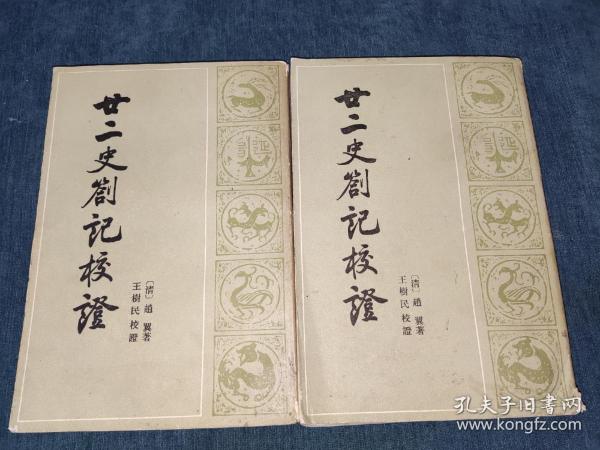 廿二史劄記校證
〔清〕趙翼著
王樹民校證
廿二史劄記校證
〔清〕趙翼著
王樹民校證
孔夫子旧书网
www.kongfz.com